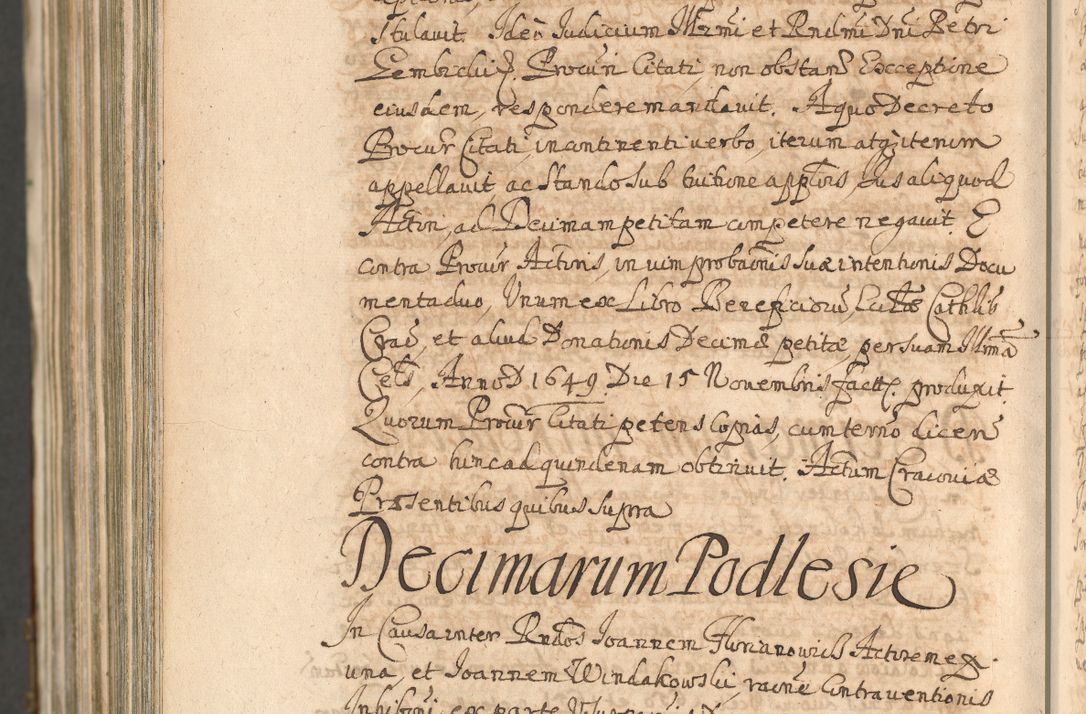 stulavit. Ideo Iudicium Illrmi et Rndmi Dni Petri
Gembicki Ep. Procur Citati non obstan Exceptione
eiusdem, respondere mandavit. A quo Decreto
Procur Citati, in continenti verbo, iterum atq iterum
appellavit ac stando sub tuitione appltnis, Ius aliquod
Actori, ad Decimam petitam competere negavit. E
contra Procur Actoris, in vim probaonis suæ intentionis Docu
menta duo, Unum ex Libro Beneficioru, Ecclæ Cathlis
Crac, et aliud Donationis Decimæ petitæ, per suam Illrma
Cels, Anno D 1649. Die 15 Novembris fact. produxit.
Quorum Procur Citati petens copias, cum termo dicen
contra hinc ad quindenam obtinuit. Actum Cracoviæ
Præsentibus quibus supra
Decimarum Podlesie
In Causa inter Rndos Ioannem Florianowicz Actorem ex
una, et Ioannem Windakowski, raone Contraventionis
Inhiboni, ex parte